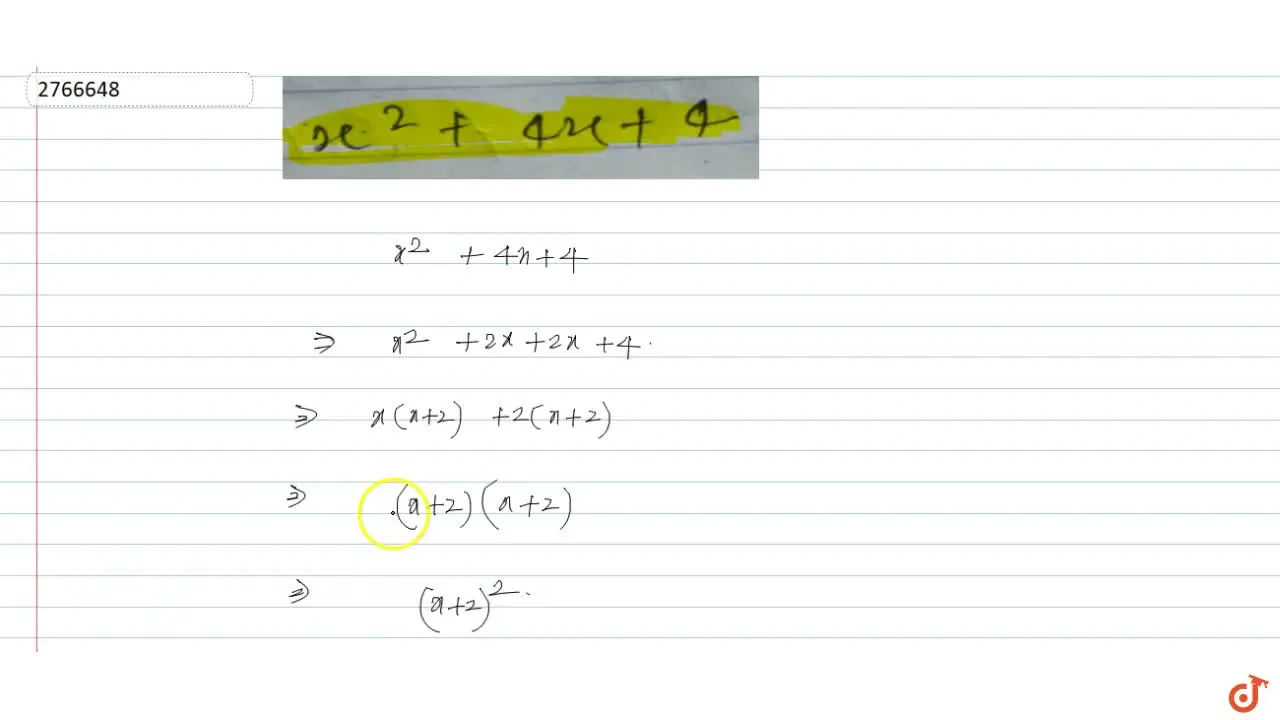 2766648
x² + 4x + 4
x² + 4x + 4
⇒ x² + 2x + 2x + 4.
⇒ x(x+2) + 2(x+2)
⇒ (x+2)(x+2)
⇒ (x+2)².